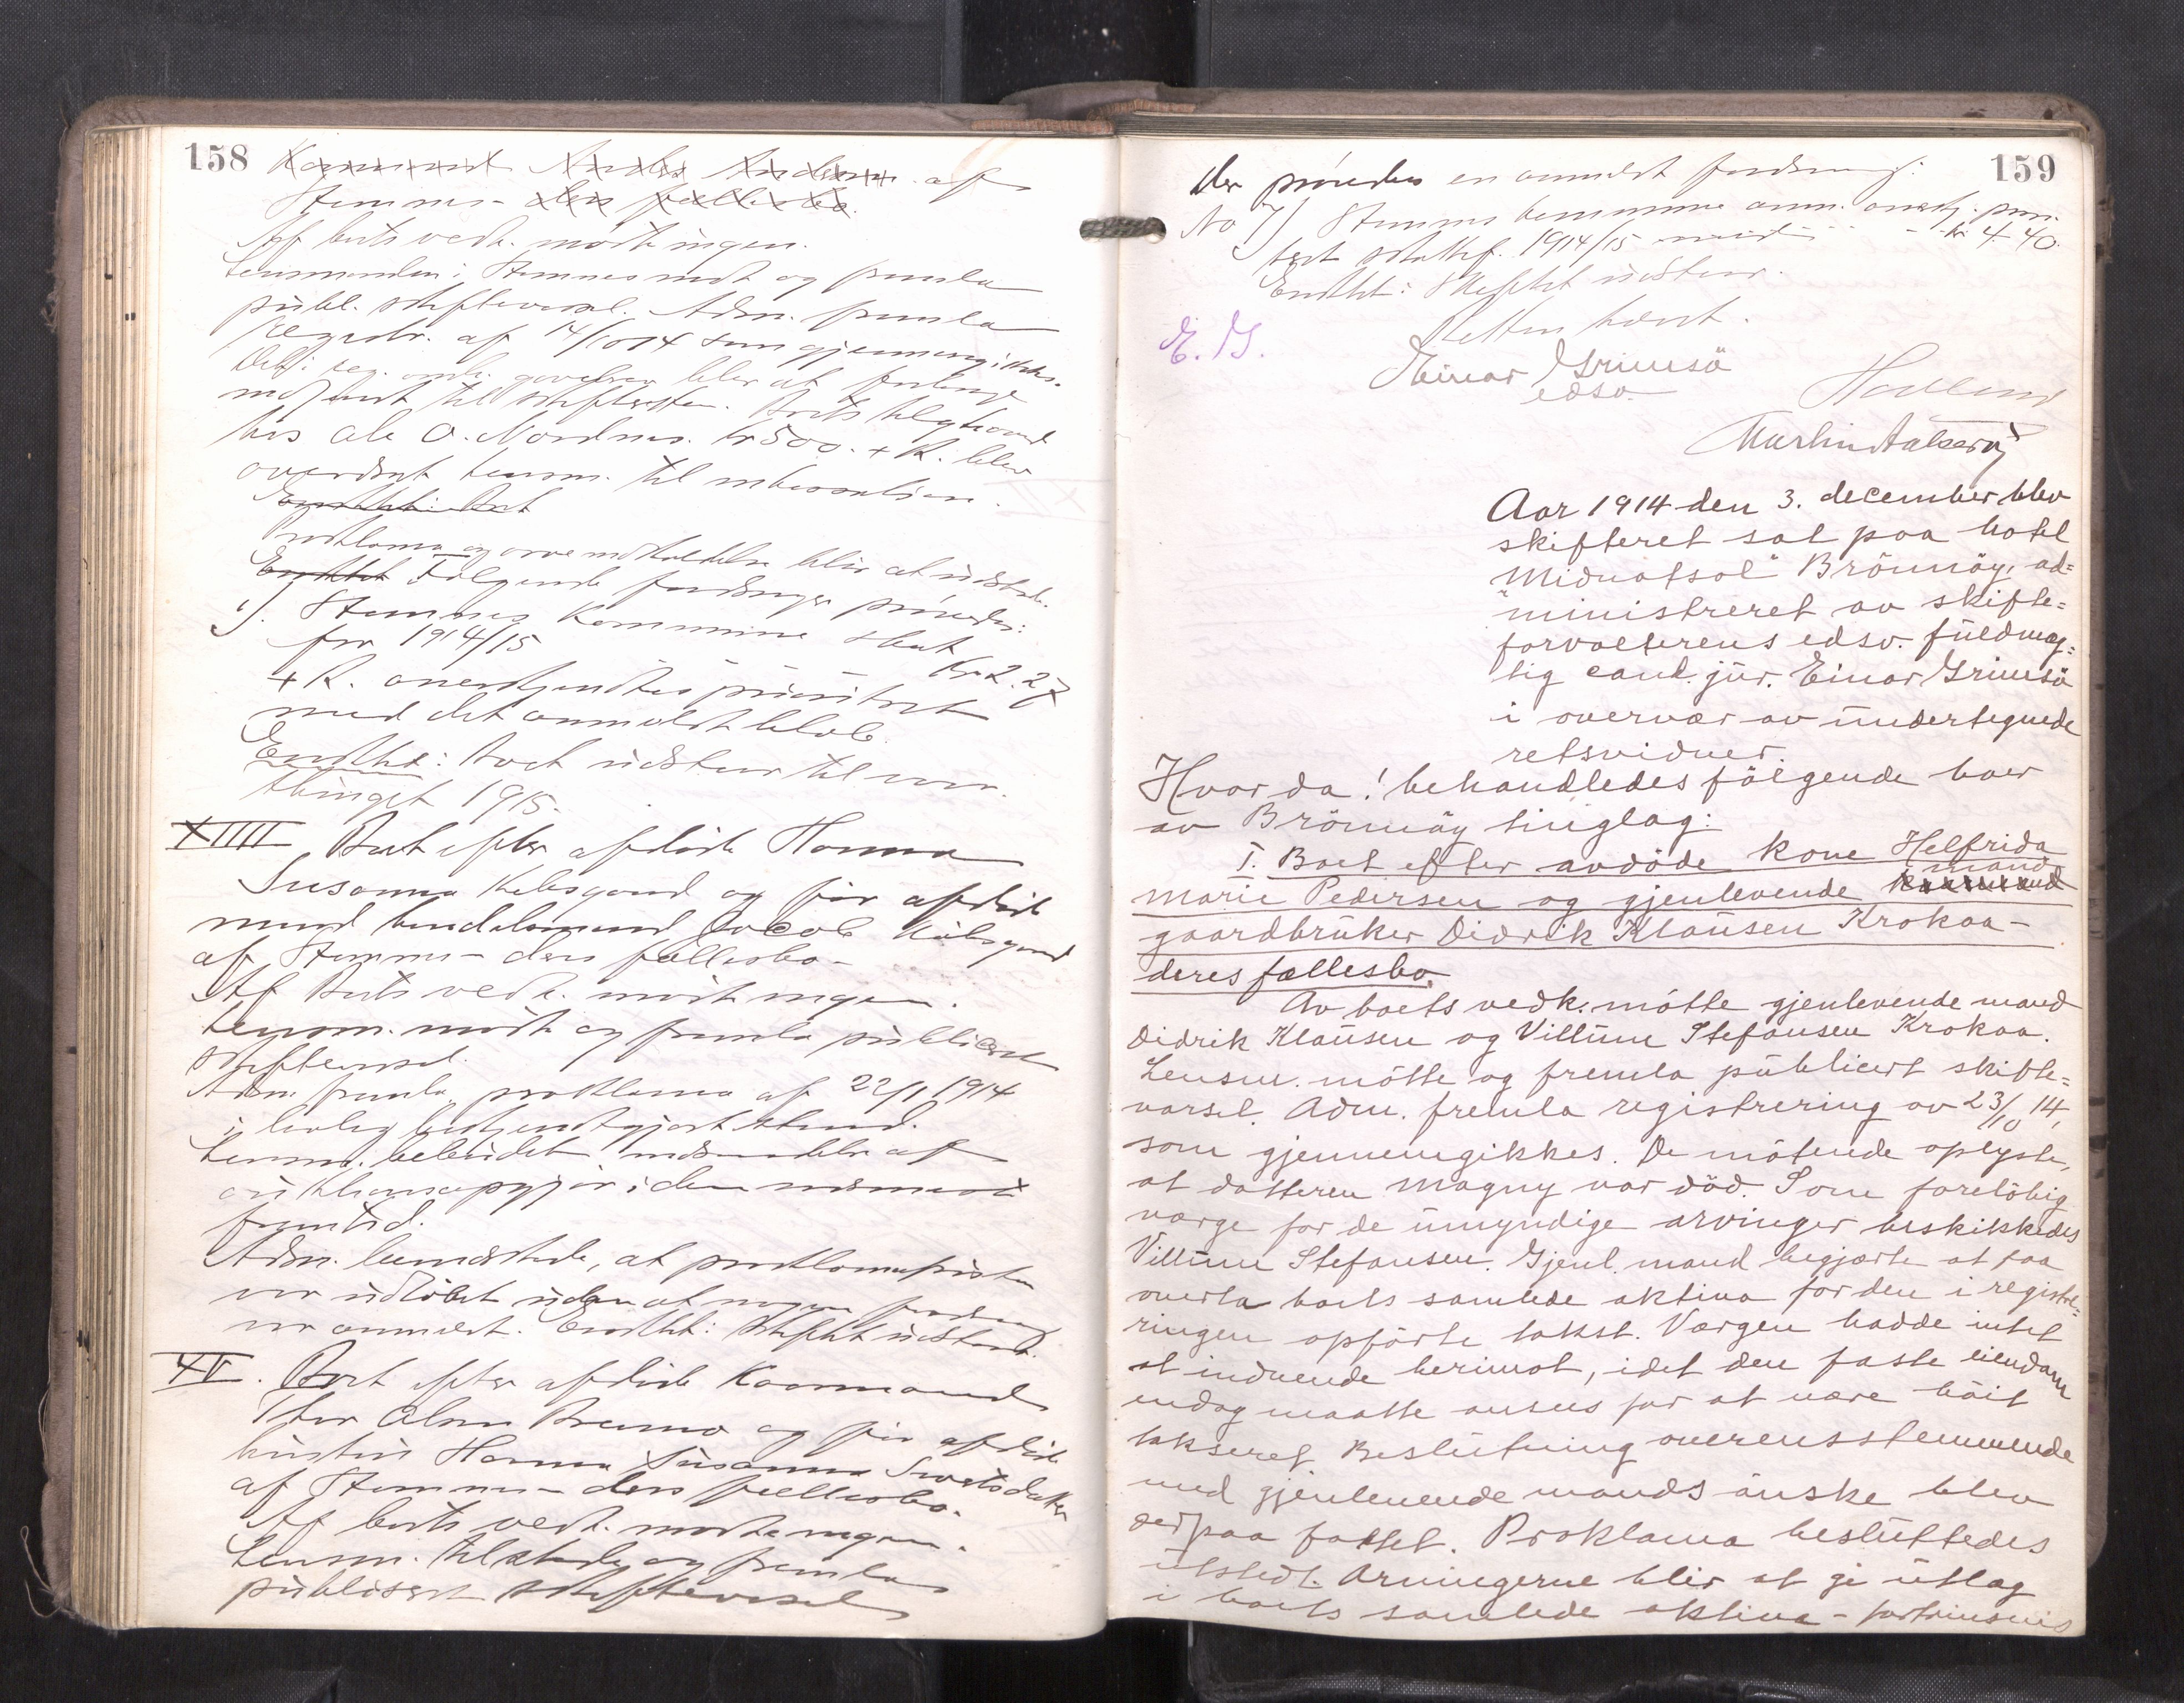 158
Kaarmand Anders Andersen af
Stamnes - des fællesbo.
Af boets vedk. mødte ingen.
Lensmanden i Stamnes mødte og fremla
publ. skiftevarsel. Adm. fremla
registr. af 14/10 14 som gjennemgikkes.
De i reg. omh. blev at forlange
indsendt til skifteretten. Boets tilgodehavende
hos Ole O. Nordnes kr 500. + R. blev
overdrat lensm. til inkassation.
Endthet: Boet
Proklama og arveindkaldelse blir at utstede.
Endthet Følgende fordringer prøvedes:
1). Stamnes kommune skat
for 1914/15 Kr 2.27
+ R. anerkjendtes prioritert
med det anmeldt beløb.
Endthet: Boet utstaar til
thinget 1915.
XIIII Boet efter afdøde Hanna
Susanna Kolsgaard og før afdøde
mand handelsmand Jacob Kolsgaard
af Stamnes - deres fællesbo -
Af Boets vedk. mødte ingen.
Lensm. mødte og fremla publicert
skiftevarsel.
Adm. fremla proklama af 22/1 1914
i lovlig bekjendtgjort stand.
Lensm. bebudet indsendelse af
auktionsopgjør i den nærmeste
fremtid.
Adm. bemerkede, at proklamafristen
var utløbet uden at nogen fordring
var anmeldt. Endthet: Skiftet utstaar.
XV. Boet efter afdøde Kaarmand
Iver Olsen og før afdøde
hustru Hanna Susanna Sivertsdatter
af Stamnes - deres fællesbo.
Af boets vedk. mødte ingen.
Lensm. tilstede og fremla
publisert skiftevarsel
159
der prøvedes en anmeldt fordring:
No 7) Stamnes kommune anm. anerkj. prioritert
skattef. 1914/15 med - - kr 4.40.
Endthet: Skiftet utstaar.
Retten hævet.
E. G.
Einar Grimsö
edsv.
Aar 1914 den 3. december blev
skifteret sat paa hotel
"Midnatsol" Brönnöy, ad=
ministreret av skifte=
forvalterens edsv. fuldmæg=
tig cand. jur. Einar Grimsö
i overvær av undertegnede
retsvidner.
Hvorda! behandledes följende boer
av Brönnöy tinglag:
I. Boet efter avdöde kone Helfrida
Marie Pedersen og gjenlevende mand
gaardbruker Didrik Klausen Krokaa -
deres fællesbo.
Av boets vedk. mötte gjenlevende mand
Didrik Klausen og Villum Stefansen Krokaa.
Lensm. mötte og fremla publicert skifte=
varsel. Adm. fremla registrering av 23/10 14,
som gjennemgikkes. De mötende oplyste,
at datteren Magny var död. Som forelöbig
værge for de umyndige arvinger beskikkedes
Villum Stefansen. Gjenl. mand begjærte at faa
overta boets samlede aktiva for den i registre=
ringen opförte takst. Værgen hadde intet
at indvende herimot, idet den faste eiendom
endog maatte ansees for at være höit
takseret. Beslutning overensstemmende
med gjenlevende mands önske blev
derpaa fattet. Proklama besluttedes
utstedt. Arvingerne blir at gi utlæg
i boets samlede aktiva - fortrinsvis